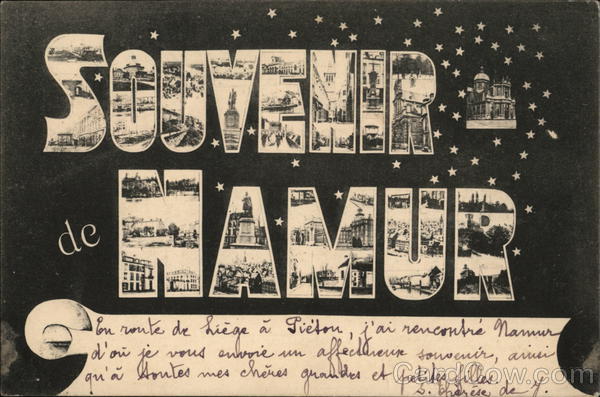 SOUVENIR
de
NAMUR
En route de Liège à Piéton, j'ai rencontré Namur
d'où je vous envoie un affectueux souvenir, ainsi
qu'à toutes mes chères grandes et petites filles.
S. Thérèse de J.
CardCow.com